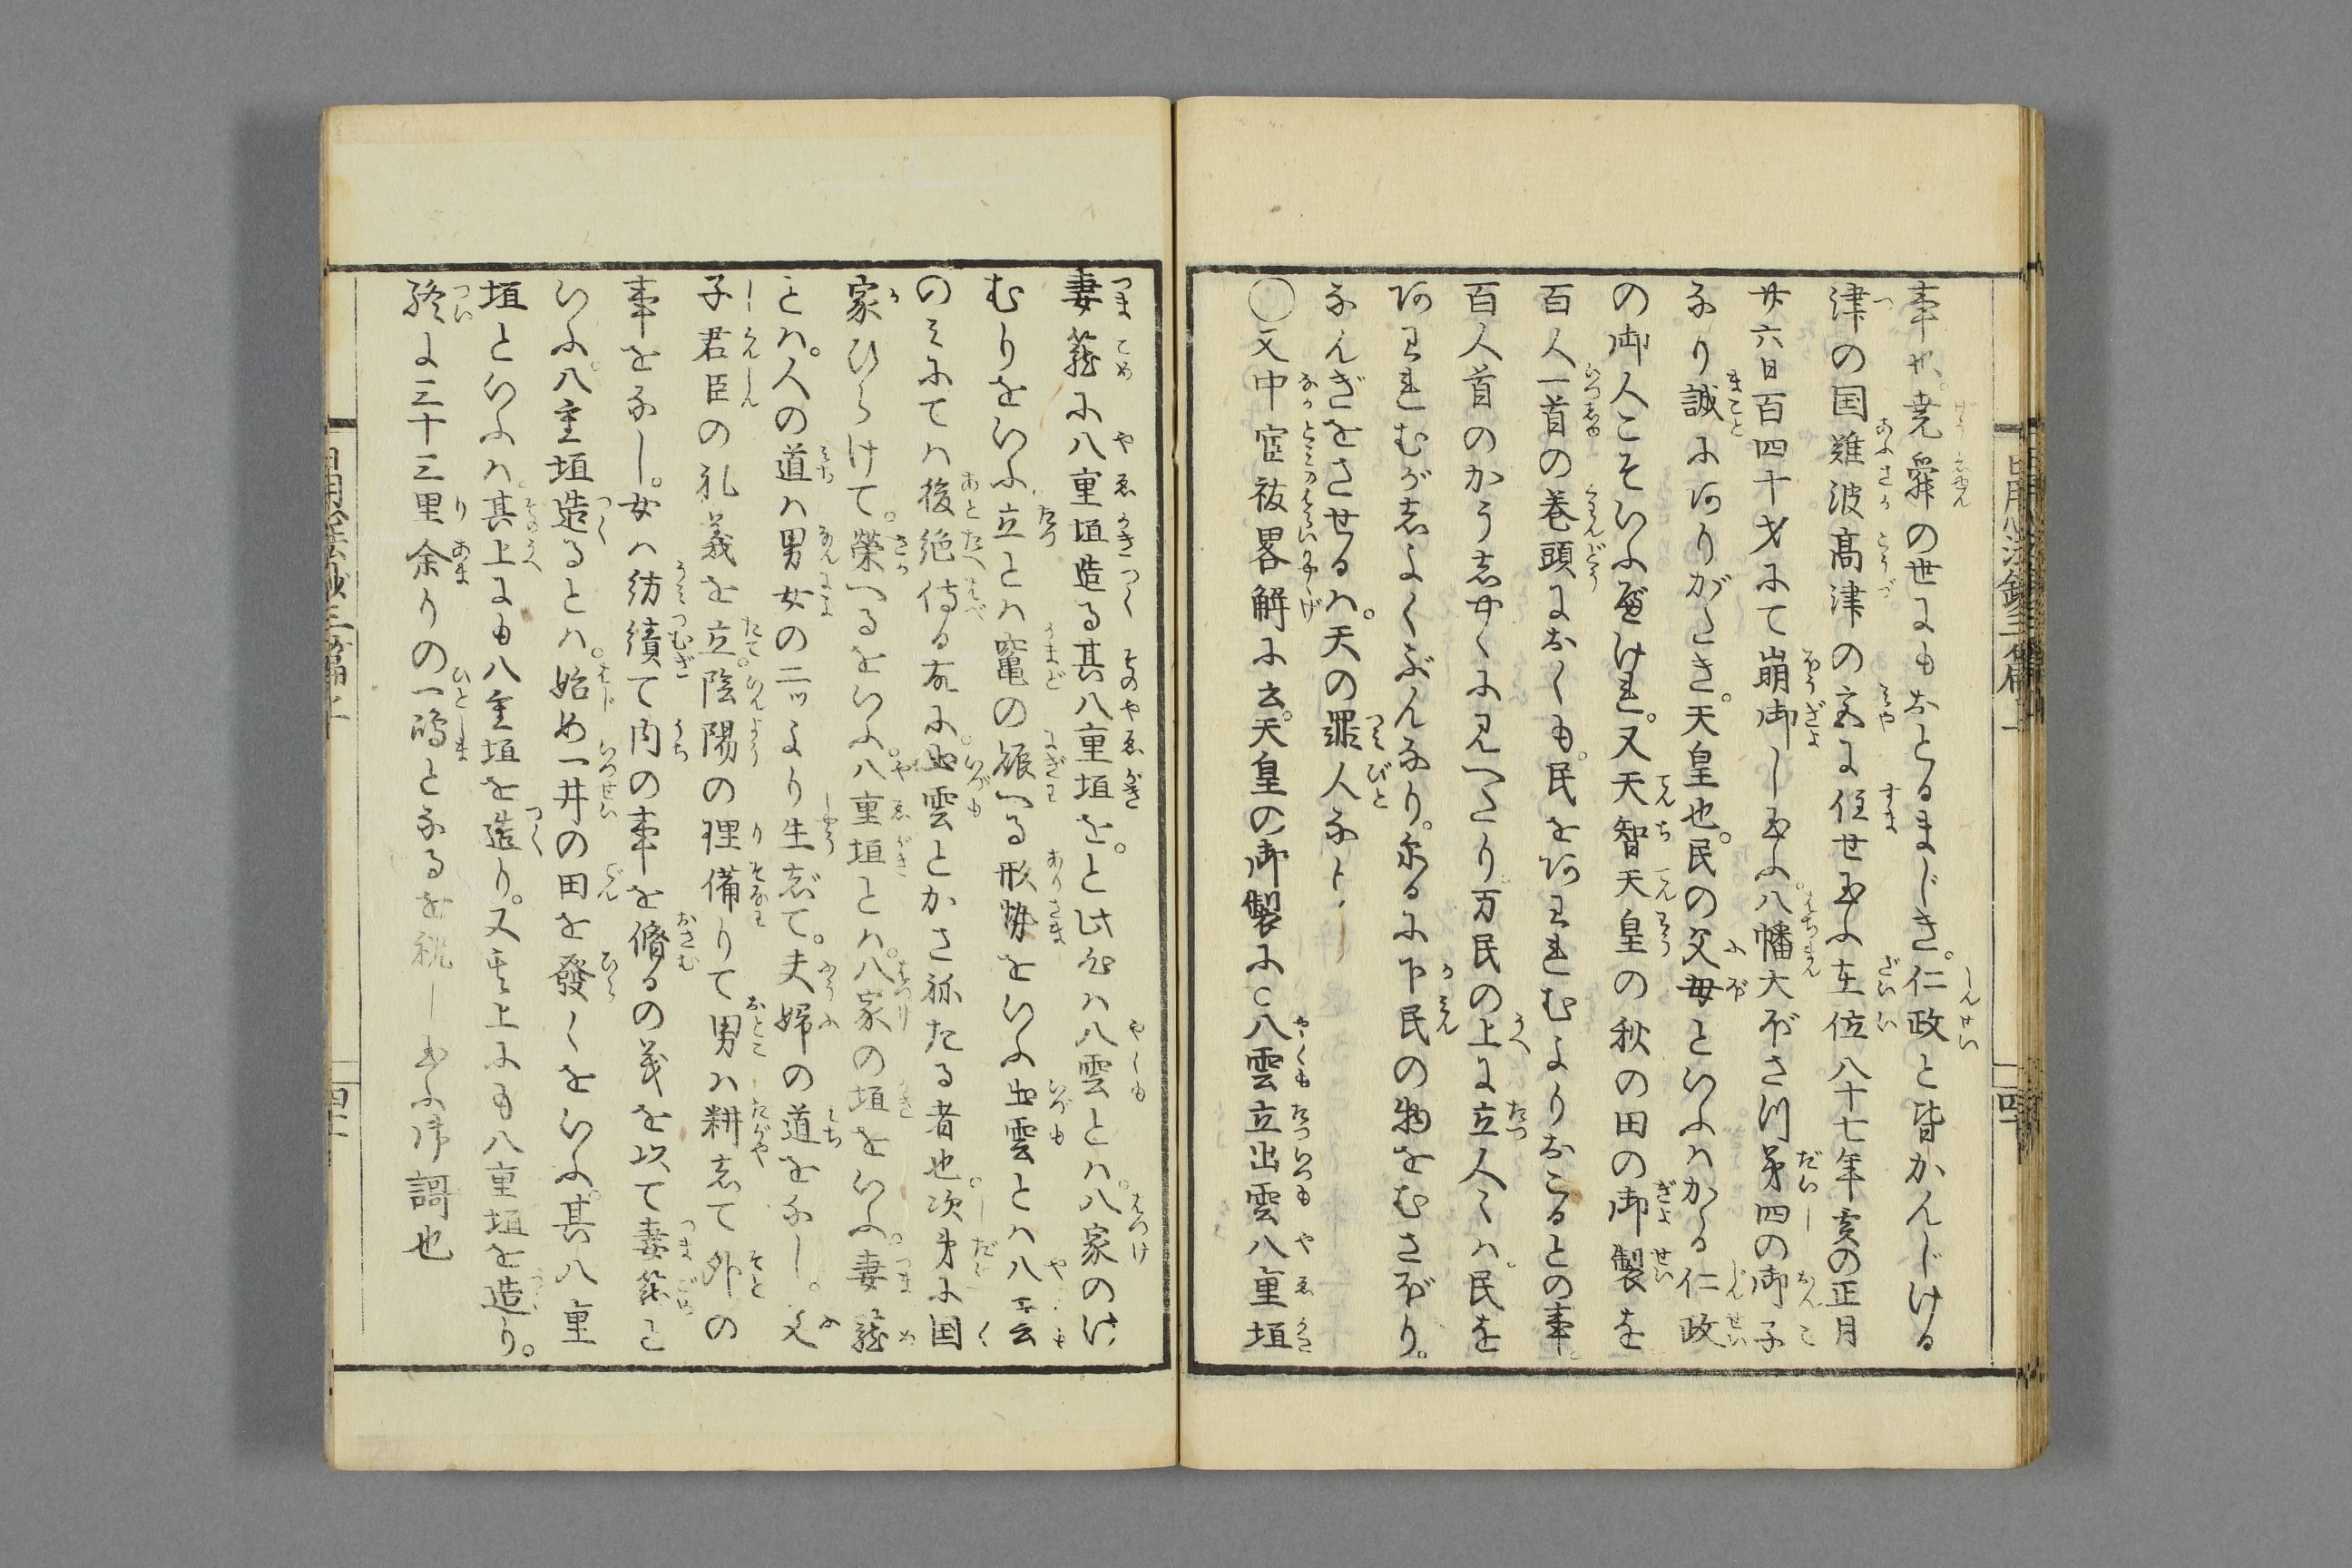 事や。堯舜の世にもおとるまじき。仁政と皆かんじける
津の国難波高津の宮に住せ玉ふ在位八十七年亥の正月
廿六日百四十才にて崩御し玉ふ。八幡大ぼさつ第四の御子
なり誠にありがたき。天皇也。民の父母といふはかゝる仁政
の御人こそいふべけれ。又天智天皇の秋の田の御製を
百人一首の巻頭におくも。民をあわれむよりおこるとの事。
百人首のかう志やくに見へたり。万民の上に立人々は。民を
あわれむが志よくぶんなり。然るに下民の物をむさぼり。
なんぎをさせるは。天の罪人なり
〇又中臣祓略解に云。天皇の御製に〇八雲立出雲八重垣
妻籠に八重垣造る其八重垣を。と此心は八雲とは。八家のけ
むりをいふ。立とは竈の賑へる形勢をいふ出雲とは八雲
のみにては後絶侍る故に。出雲とかさ祢たる者也。次第に国
家ひらけて。栄へるをいふ。八重垣とは。八家の垣をいふ。妻籠
とは。人の道は男女の二ツより生志て。夫婦の道をなし。父
子君臣の礼義を立。陰陽の理備りて男は耕志て外の
事をなし。女は紡績て内の事を脩るの義を以て妻籠と
いふ。八重垣造るとは。始め一井の田を発くをいふ。其八重
垣といふは。其上にも八重垣を造り。又其上にも八重垣を造り。
終に三十三里余りの一嶋となるを祝し玉ふ御謌也